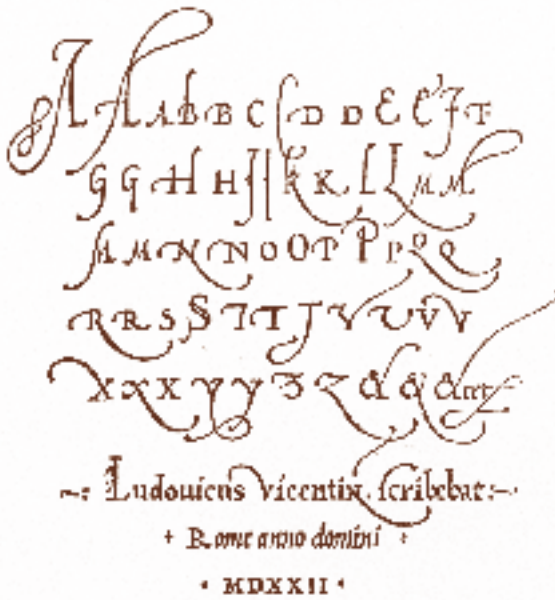 A A A B B C D D D E E F F
G G H H I I K K L L M M
M M N N O O P P P Q Q
R R S S T T T V V V V
X X X Y Y Z Z & & & etc
~: Ludouicus Vicentin. scribebat :~
+ Rome anno domini +
· MDXXII ·